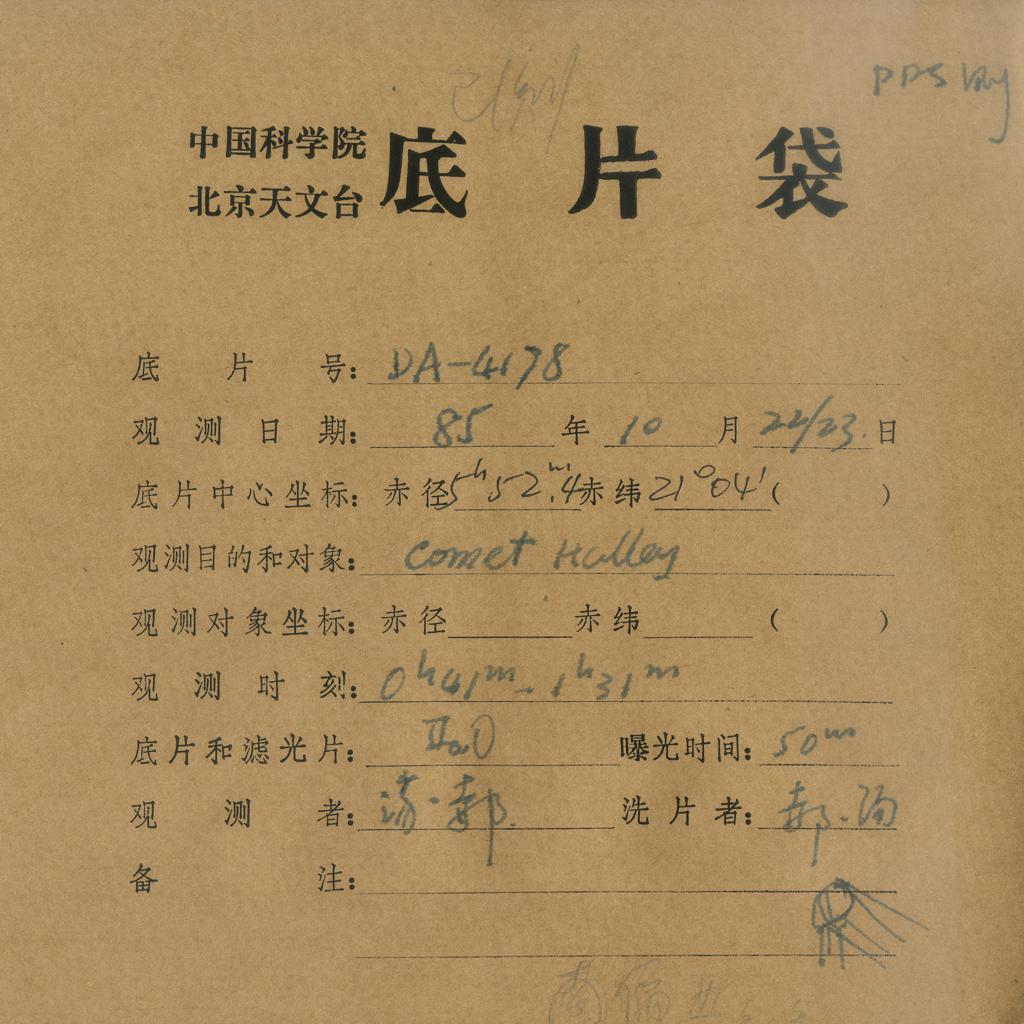 中国科学院
北京天文台
底片袋
底片号: DA-4178
观测日期: 85 年 10 月 22/23 日
底片中心坐标: 赤径 5h52m.4 赤纬 21°04' ( )
观测目的和对象: Comet Halley
观测对象坐标: 赤径 赤纬 ( )
观测时刻: 0h41m - 1h31m
底片和滤光片: IIaO 曝光时间: 50m
观测者: 郝 洗片者: 郝
备注: